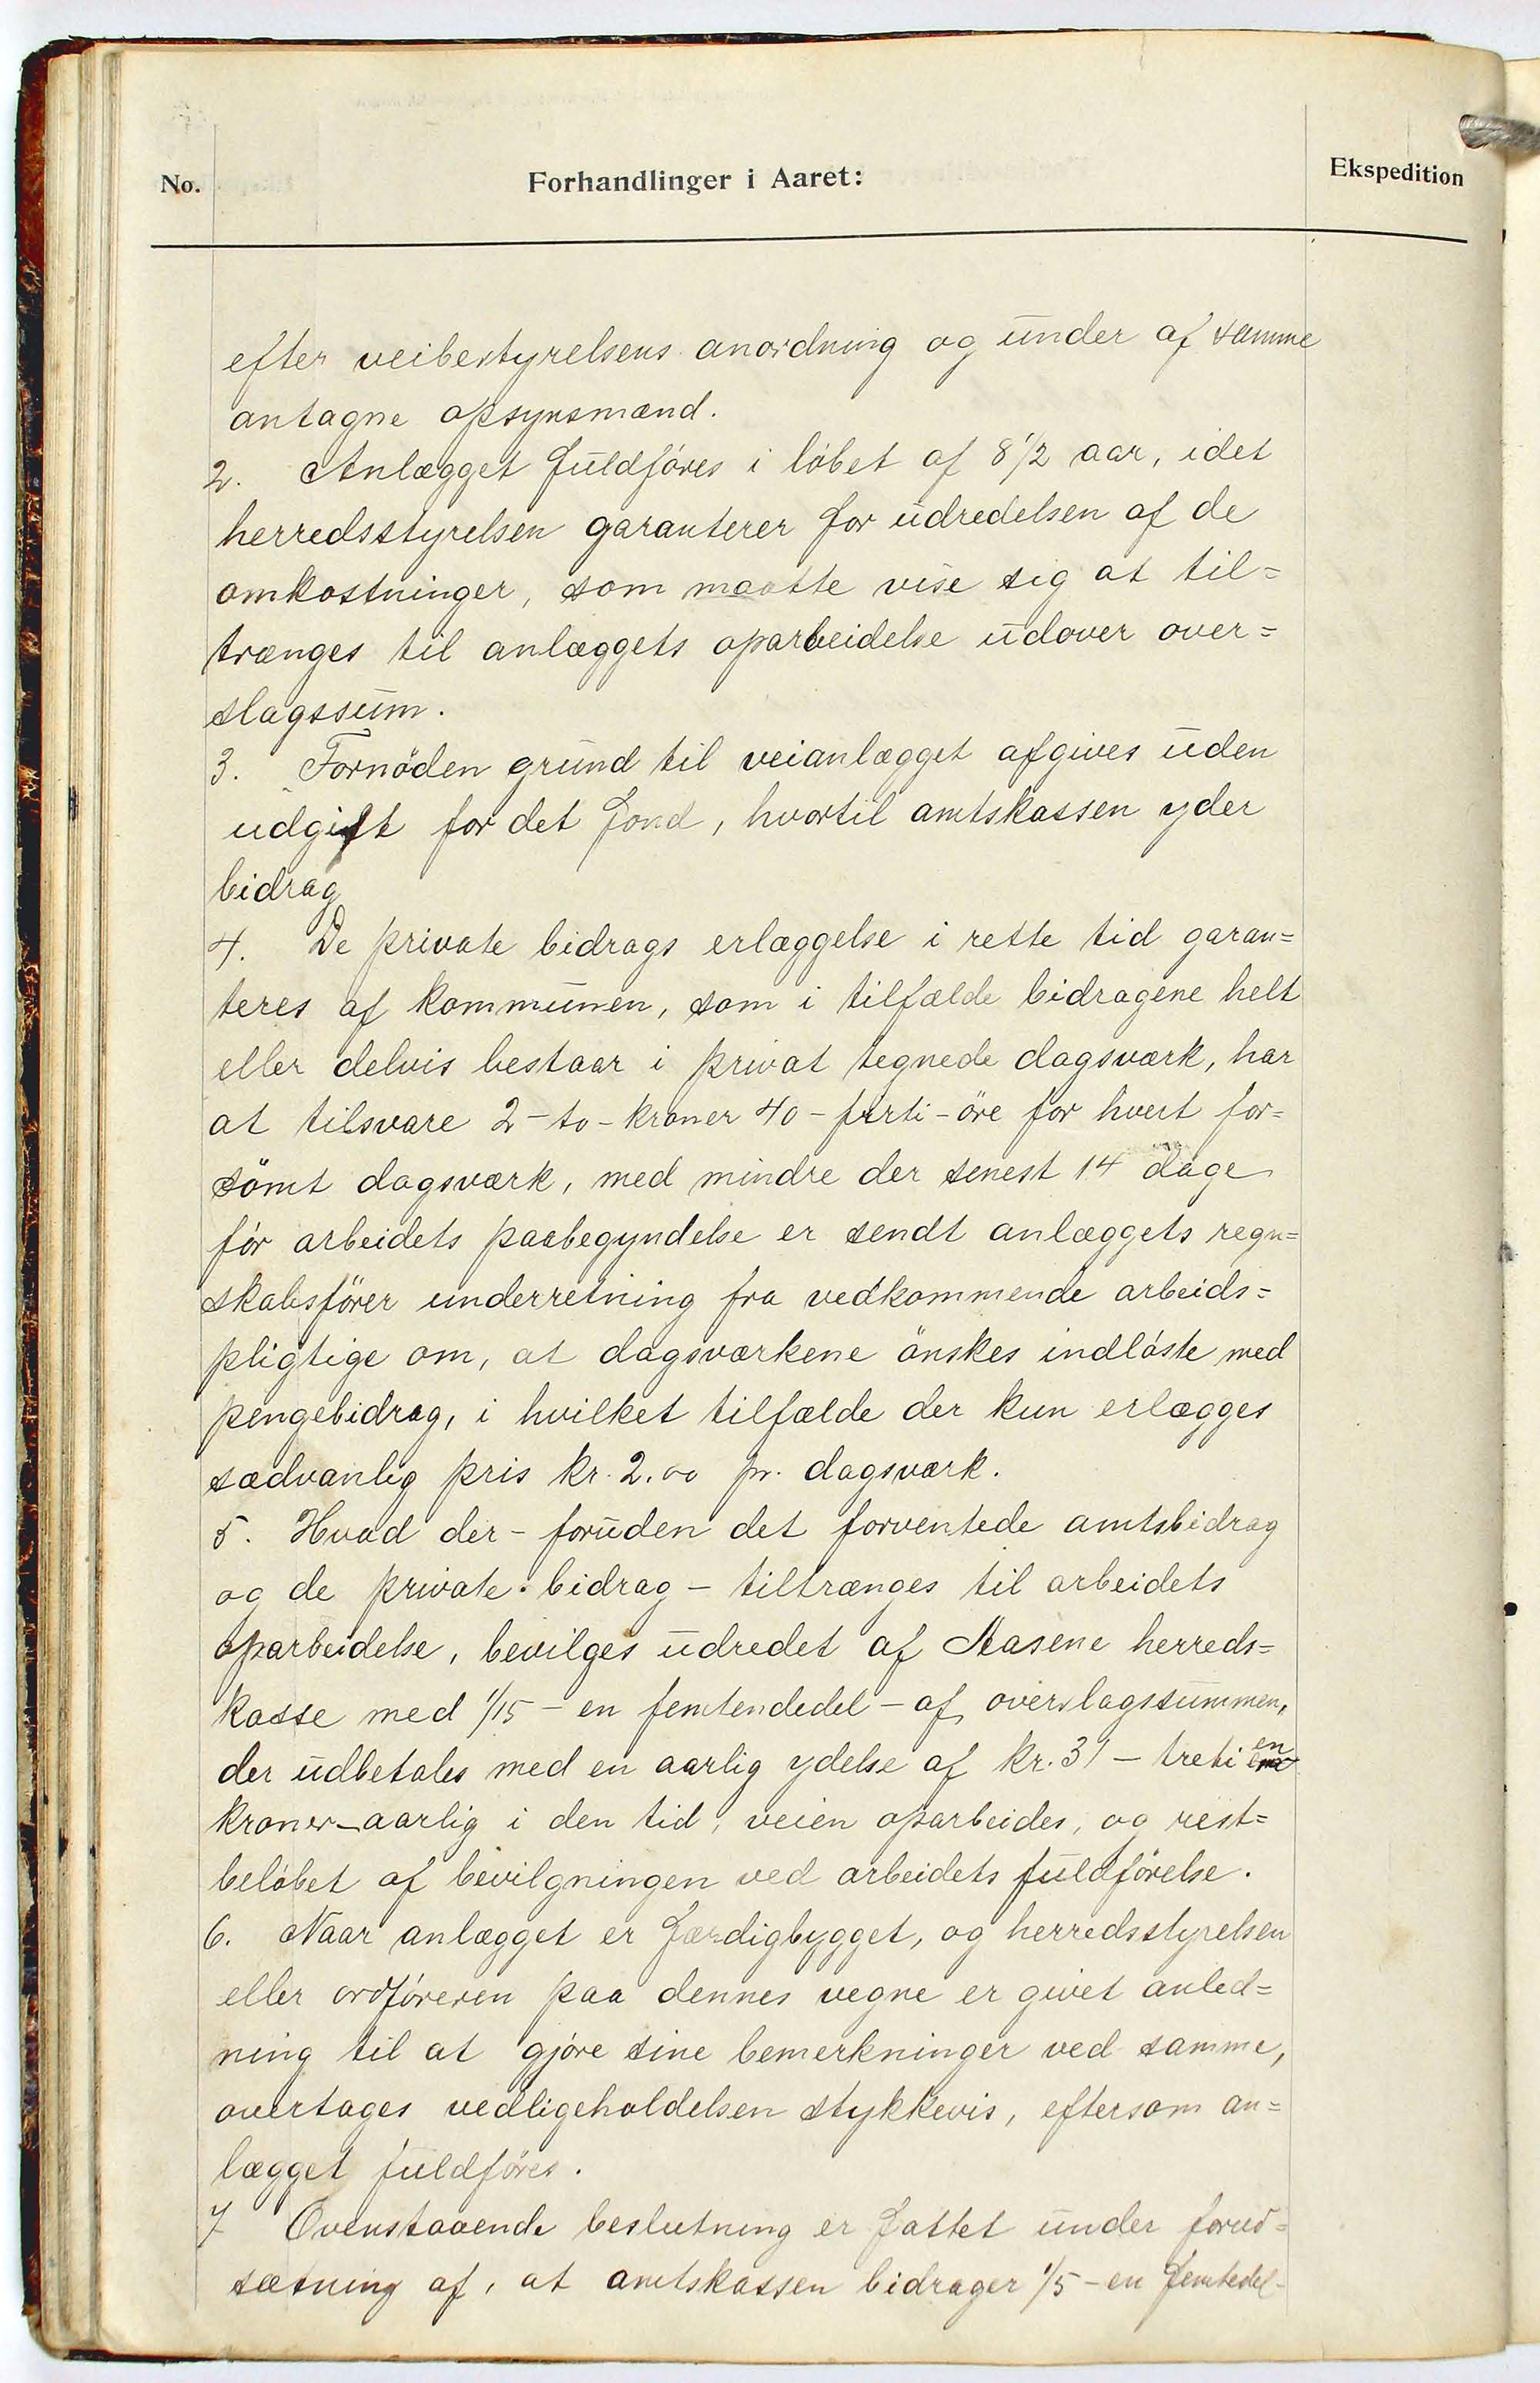 No.
Forhandlinger i Aaret:
Ekspedition
efter veibestyrelsens anordning og under af samme
antagne opsynsmænd.
2. Anlægget fuldføres i løbet af 8 1/2 aar, idet
herredsstyrelsen garanterer for udredelsen af de
omkostninger, som maatte vise sig at til=
trænges til anlæggets oparbeidelse udover over=
slagssum.
3. Fornöden grund til veianlægget afgives uden
udgift for det fond, hvortil amtskassen yder
bidrag
4. De private bidrags erlæggelse i rette tid garan=
teres af kommunen, som i tilfælde bidragene helt
eller delvis bestaar i privat tegnede dagsværk, har
at tilsvare 2 - to - kroner 40 - førti - öre for hvert for=
sömt dagsværk, med mindre der senest 14 dage
før arbeidets paabegyndelse er sendt anlæggets regn=
skabsfører underretning fra vedkommende arbeids=
pligtige om, at dagsværkene önskes indløste med
pengebidrag, i hvilket tilfælde der kun erlægges
sædvanlig pris kr. 2.00 pr. dagsværk.
5. Hvad der - foruden det forventede amtsbidrag
og de private bidrag - tiltrænges til arbeidets
oparbeidelse, bevilges udredet af Aasene herreds=
kasse med 1/15 - en femtendedel - af overslagssummen,
der udbetales med en aarlig ydelse af kr. 31 - treti en
kroner - aarlig i den tid, veien oparbeides, og rest=
beløbet af bevilgningen ved arbeidets fuldførelse.
6. Naar anlægget er færdigbygget, og herredsstyrelsen
eller ordføreren paa dennes vegne er givet anled=
ning til at gjøre sine bemerkninger ved samme,
overtages vedligeholdelsen stykkevis, eftersom an=
lægget fuldføres.
7 Ovenstaaende beslutning er fattet under forud=
sætning af, at amtskassen bidrager 1/5 - en femtedel -